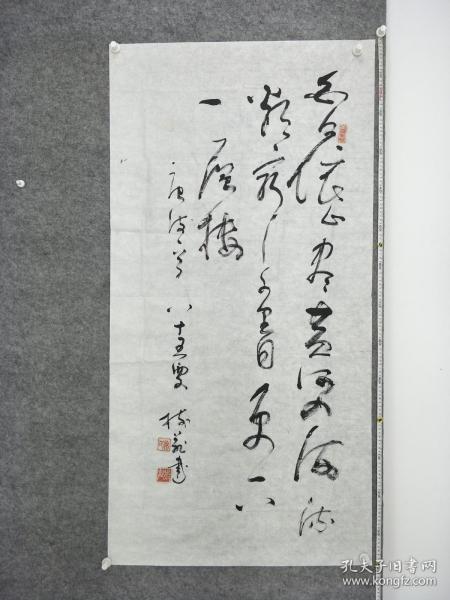 白日依山尽黄河入海流
欲窮千里目更上
一層樓
唐诗一首 八十五叟 書
孔夫子旧书网
www.kongfz.com